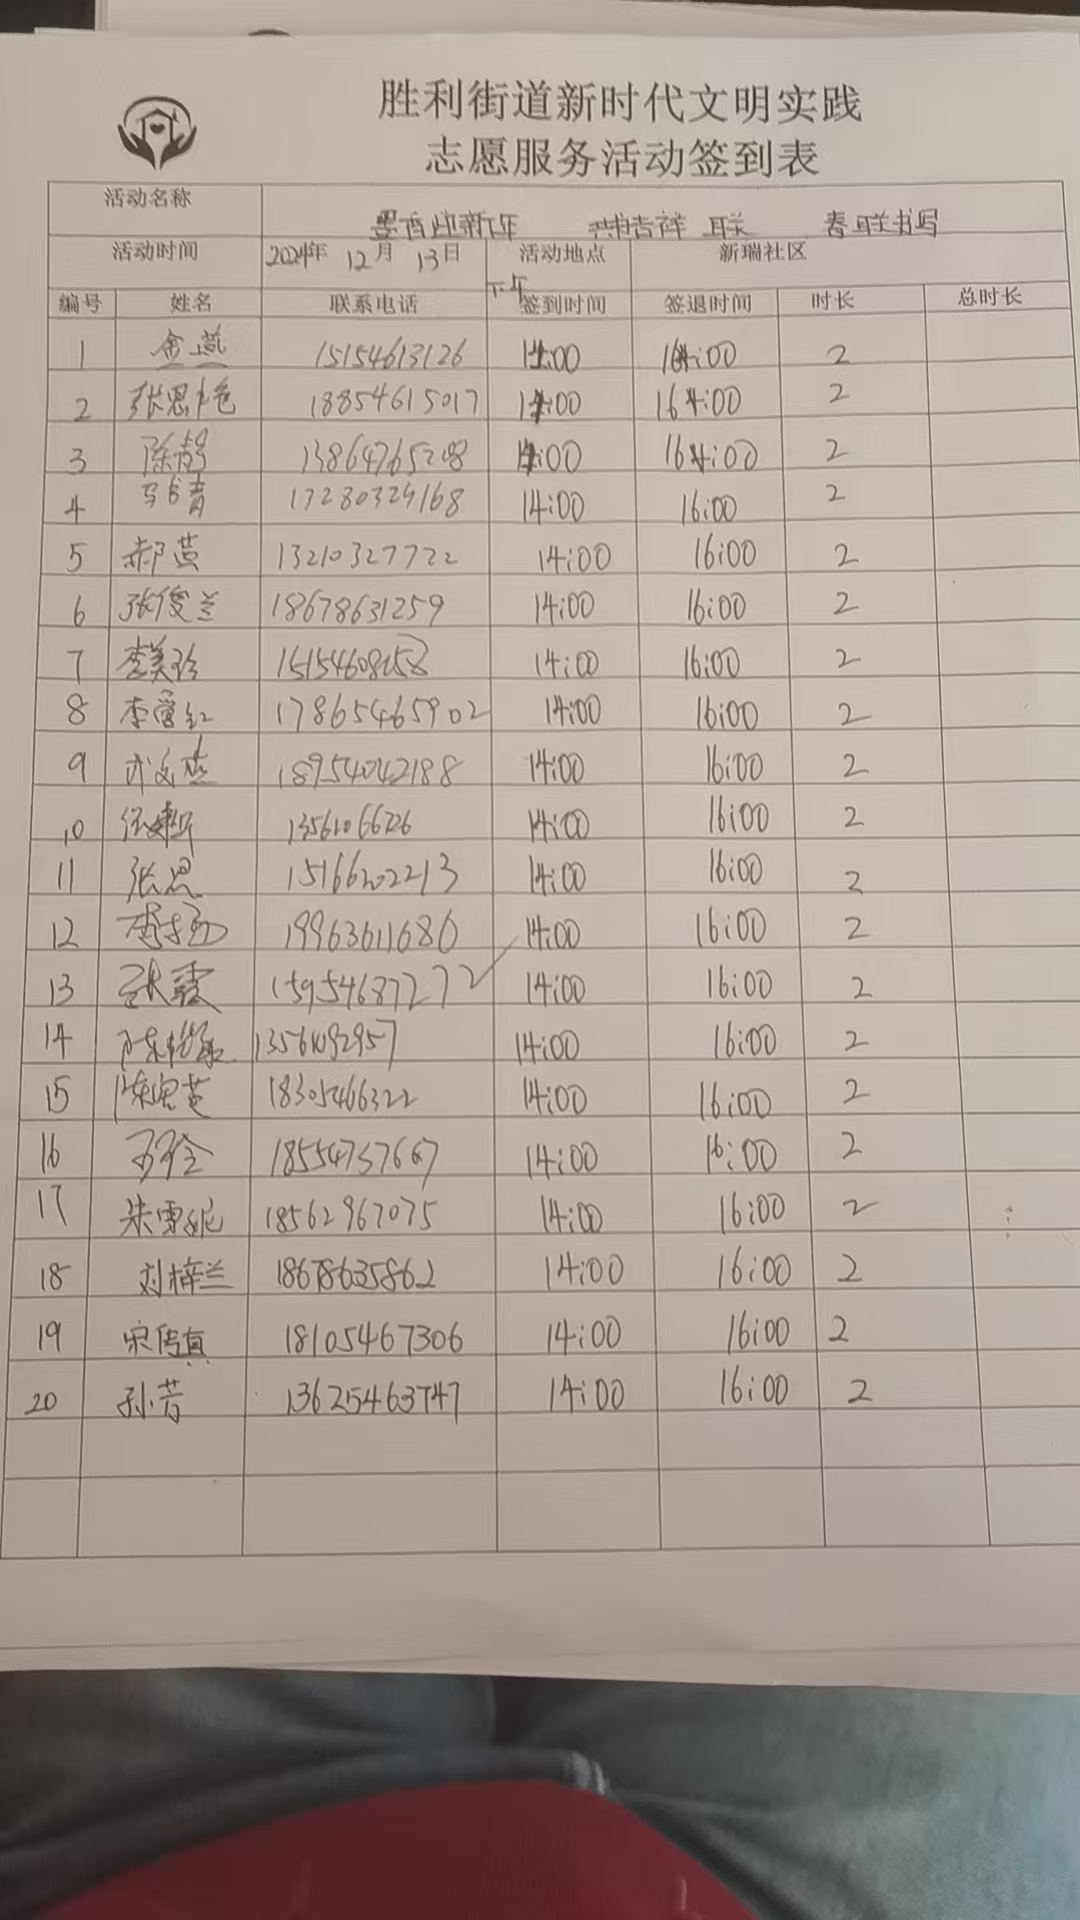 胜利街道新时代文明实践
志愿服务活动签到表
活动名称 墨香迎新年 书吉祥联 春联书写
活动时间 2024年 12月 13日 活动地点 新瑞社区
下午
编号 姓名 联系电话 签到时间 签退时间 时长 总时长
1 金燕 15154613126 14:00 16:00 2
2 张思 18854615017 14:00 16:00 2
3 陈静 13864765208 14:00 16:00 2
4 马青 17280329168 14:00 16:00 2
5 郝黄 13210327722 14:00 16:00 2
6 张俊兰 18678631259 14:00 16:00 2
7 李美玲 14:00 16:00 2
8 李雪红 17865465902 14:00 16:00 2
9 武文杰 18954042188 14:00 16:00 2
10 14:00 16:00 2
11 张思 15166202213 14:00 16:00 2
12 李扬 19963611680 14:00 16:00 2
13 张霞 15954687272 14:00 16:00 2
14 陈 14:00 16:00 2
15 陈 18305466322 14:00 16:00 2
16 18554737667 14:00 16:00 2
17 朱雪妮 18562967075 14:00 16:00 2
18 刘梓兰 18678635862 14:00 16:00 2
19 宋传真 18105467306 14:00 16:00 2
20 孙昔 13625463747 14:00 16:00 2